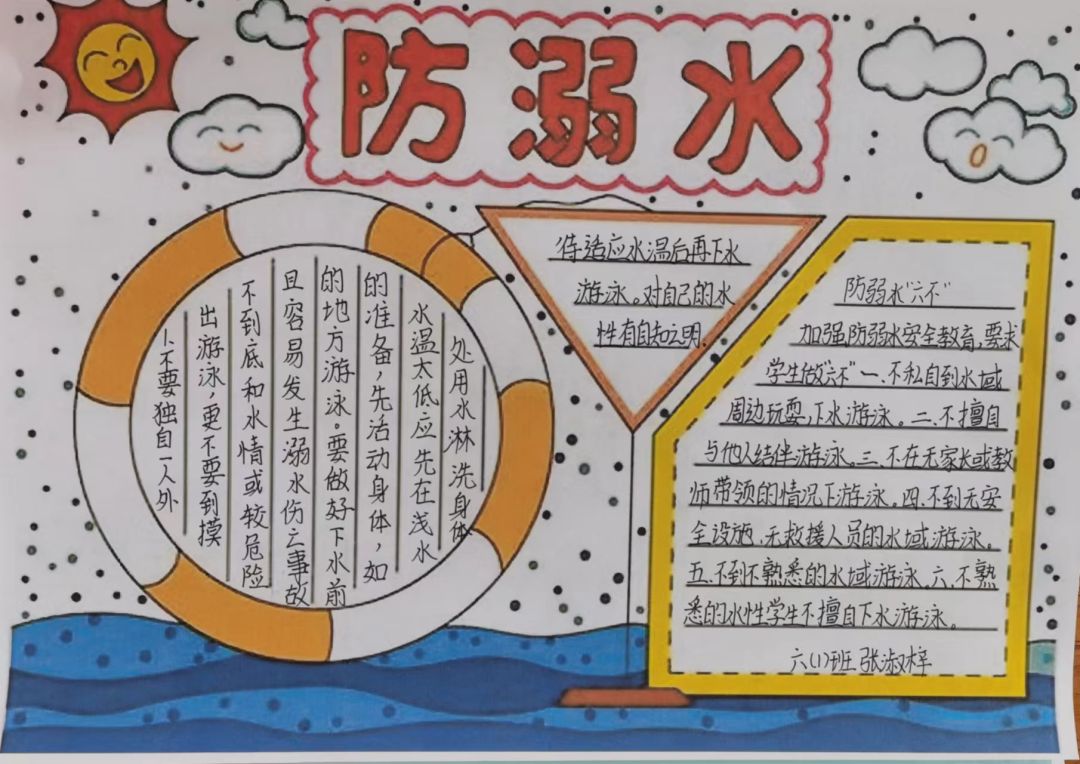 防溺水
1.不要独自一人外
出游泳,更不要到摸
不到底和水情或较危险
且容易发生溺水伤亡事故
的地方游泳。要做好下水前
的准备,先活动身体,如
水温太低应先在浅水
处用水淋洗身体
待适应水温后再下水
游泳。对自己的水
性有自知之明.
防弱水"六不"
加强防弱水安全教育,要求
学生做"六不"一、不私自到水域
周边玩耍,下水游泳。二、不擅自
与他人结伴游泳。三、不在无家长或教
师带领的情况下游泳。四、不到无安
全设施、无救援人员的水域游泳。
五、不到不熟悉的水域游泳、六、不熟
悉的水性学生不擅自下水游泳。
六(1)班 张淑梓